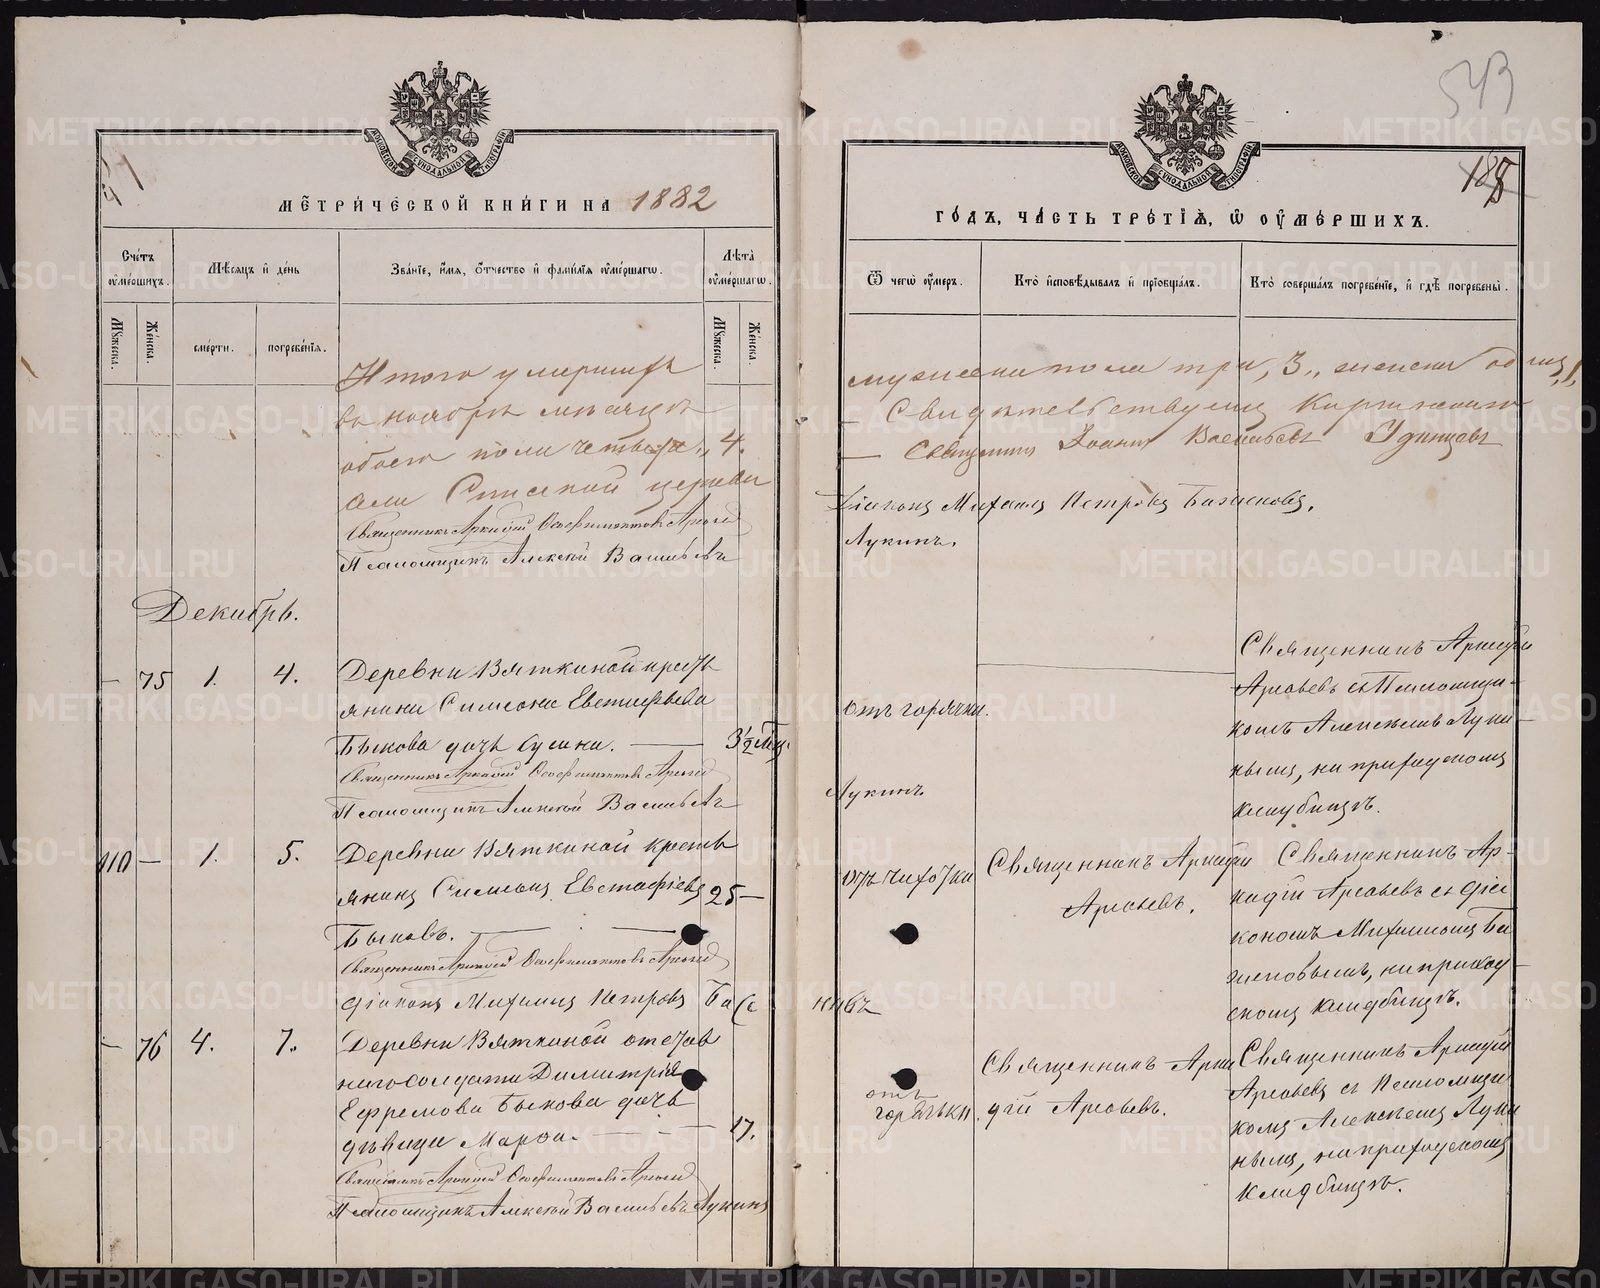 METRIKI.GASO-URAL.RU
543
188
МОСКОВСКОЙ СѴНОДАЛЬНОЙ ТИПОГРАФІИ
МЕТРИЧЕСКОЙ КНИГИ НА 1882
Счетъ оумершихъ.
Мѣсяцъ и день
Званіе, имя, отчество и фамилія оумершагѡ.
Лѣта оумершагѡ.
Мужеска.
Женска.
смерти.
погребенія.
Мужеска.
Женска.
Итого умершихъ
въ ноябрѣ мѣсяцѣ
обоего пола четыре „4.
Священникъ Аркадій Ѳеофилактовъ Арсьевъ
Псаломщикъ Алексѣй Васильевъ
Декабрь.
— 75 1. 4. Деревни Вяткиной кресть
янина Симеона Евстафьева
Быкова дочь — 3½ Мѣц.
Священникъ Аркадій Ѳеофилактовъ Арсьевъ
Псаломщикъ Алексѣй Васильевъ
110 — 1. 5. Деревни Вяткиной кресть
янинъ Симеонъ Евстафіевъ 25 —
Быковъ.
Священникъ Аркадій Ѳеофилактовъ Арсьевъ
Діаконъ Михаилъ Петровъ Ба
— 76 4. 7. Деревни Вяткиной отстав
наго солдата Димитрія
Ефремова Быкова дочь
дѣвица Марѳа. — 17.
Священникъ Аркадій Ѳеофилактовъ Арсьевъ
Псаломщикъ Алексѣй Васильевъ Лукинъ
МОСКОВСКОЙ СѴНОДАЛЬНОЙ ТИПОГРАФІИ
ГОДЪ, ЧАСТЬ ТРЕТІЯ, Ѡ ОУМЕРШИХЪ.
Ѿ чегѡ оумеръ.
Кто исповѣдывалъ и пріобщалъ.
Кто совершалъ погребеніе, и гдѣ погребены.
мужеска пола три, 3., женска одинъ, 1,
Свидѣтельствуемъ
— Священникъ Іоаннъ Васильевъ Удинцевъ
Діаконъ Михаилъ Петровъ Баженовъ.
Лукинъ.
Отъ горячки.
Священникъ Аркадій
Арсьевъ съ Псаломщи-
комъ Алексѣемъ Луки-
нымъ, на приходскомъ
кладбищѣ.
Лукинъ
Отъ чахотки
Священникъ Аркадій
Арсьевъ.
Священникъ Ар-
кадій Арсьевъ съ діа
кономъ Михаиломъ Ба
женовымъ, на приход-
скомъ кладбищѣ.
отъ
горячки.
Священникъ Арка
дій Арсьевъ.
Священникъ Аркадій
Арсьевъ съ Псаломщи
комъ Алексѣемъ Луки
нымъ, на приходскомъ
кладбищѣ.